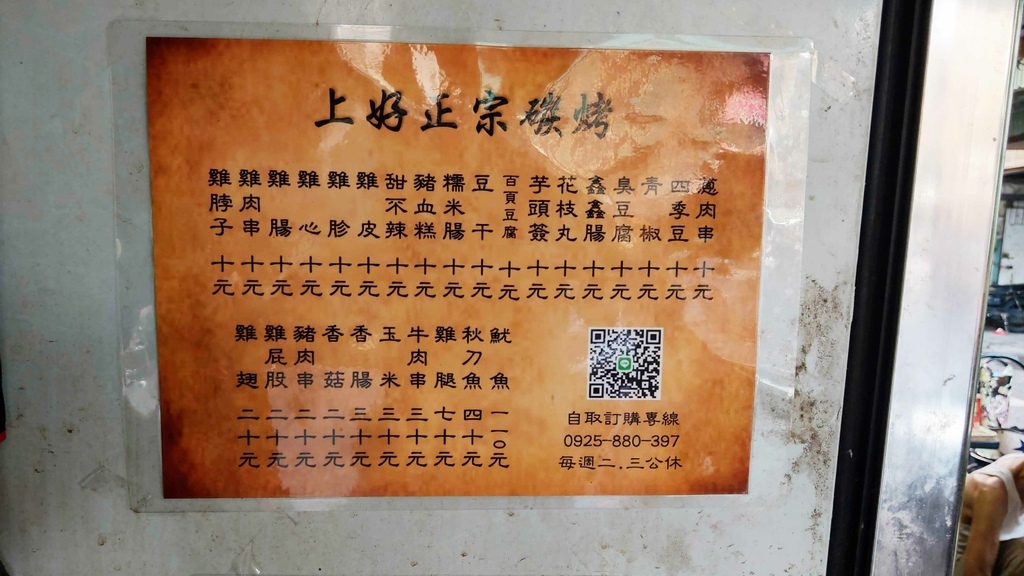 上好正宗碳烤
雞脖子十元
雞肉串十元
雞腸十元
雞心十元
雞胗十元
雞皮十元
甜不辣十元
豬血糕十元
糯米腸十元
豆干十元
百頁豆腐十元
芋頭簽十元
花枝丸十元
鑫鑫腸十元
臭豆腐十元
青椒十元
四季豆十元
蔥肉串十元
雞翅二十元
雞屁股二十元
豬肉串二十元
香菇二十元
香腸三十元
玉米三十元
牛肉串三十元
雞腿七十元
秋刀魚四十元
魷魚一一0元
自取訂購專線
0925-880-397
每週二.三公休